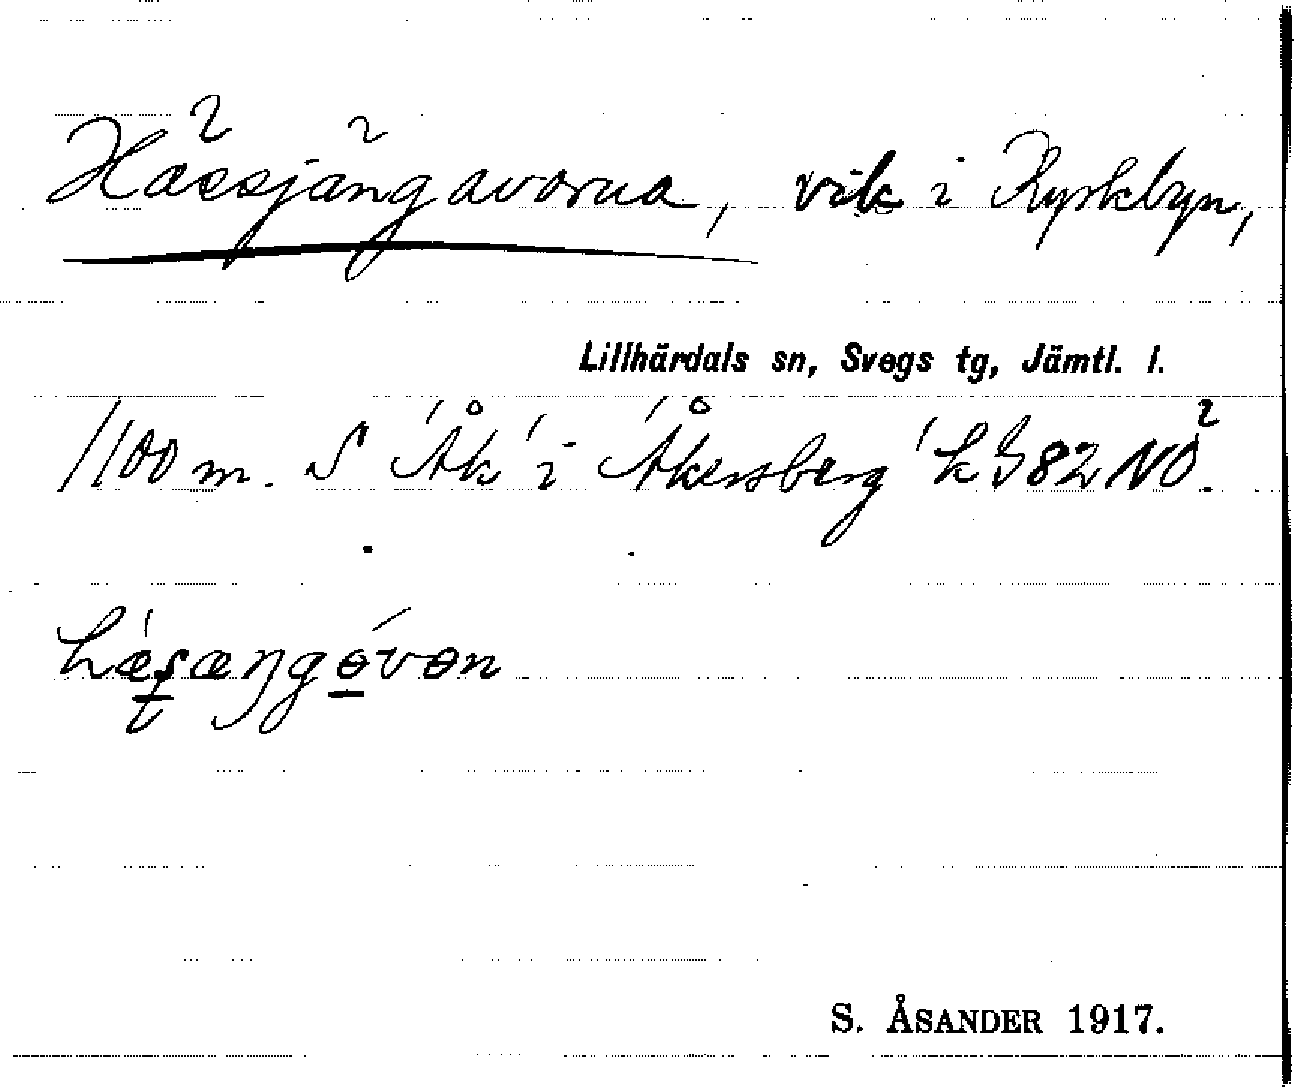 Hässjängavorna, vik i Kyrkbyn,
Lillhärdals sn, Svegs tg, Jämtl. l.
1100 m. S 'Åk' i 'Åkersberg' k G 82 NO.
S. ÅSANDER 1917.